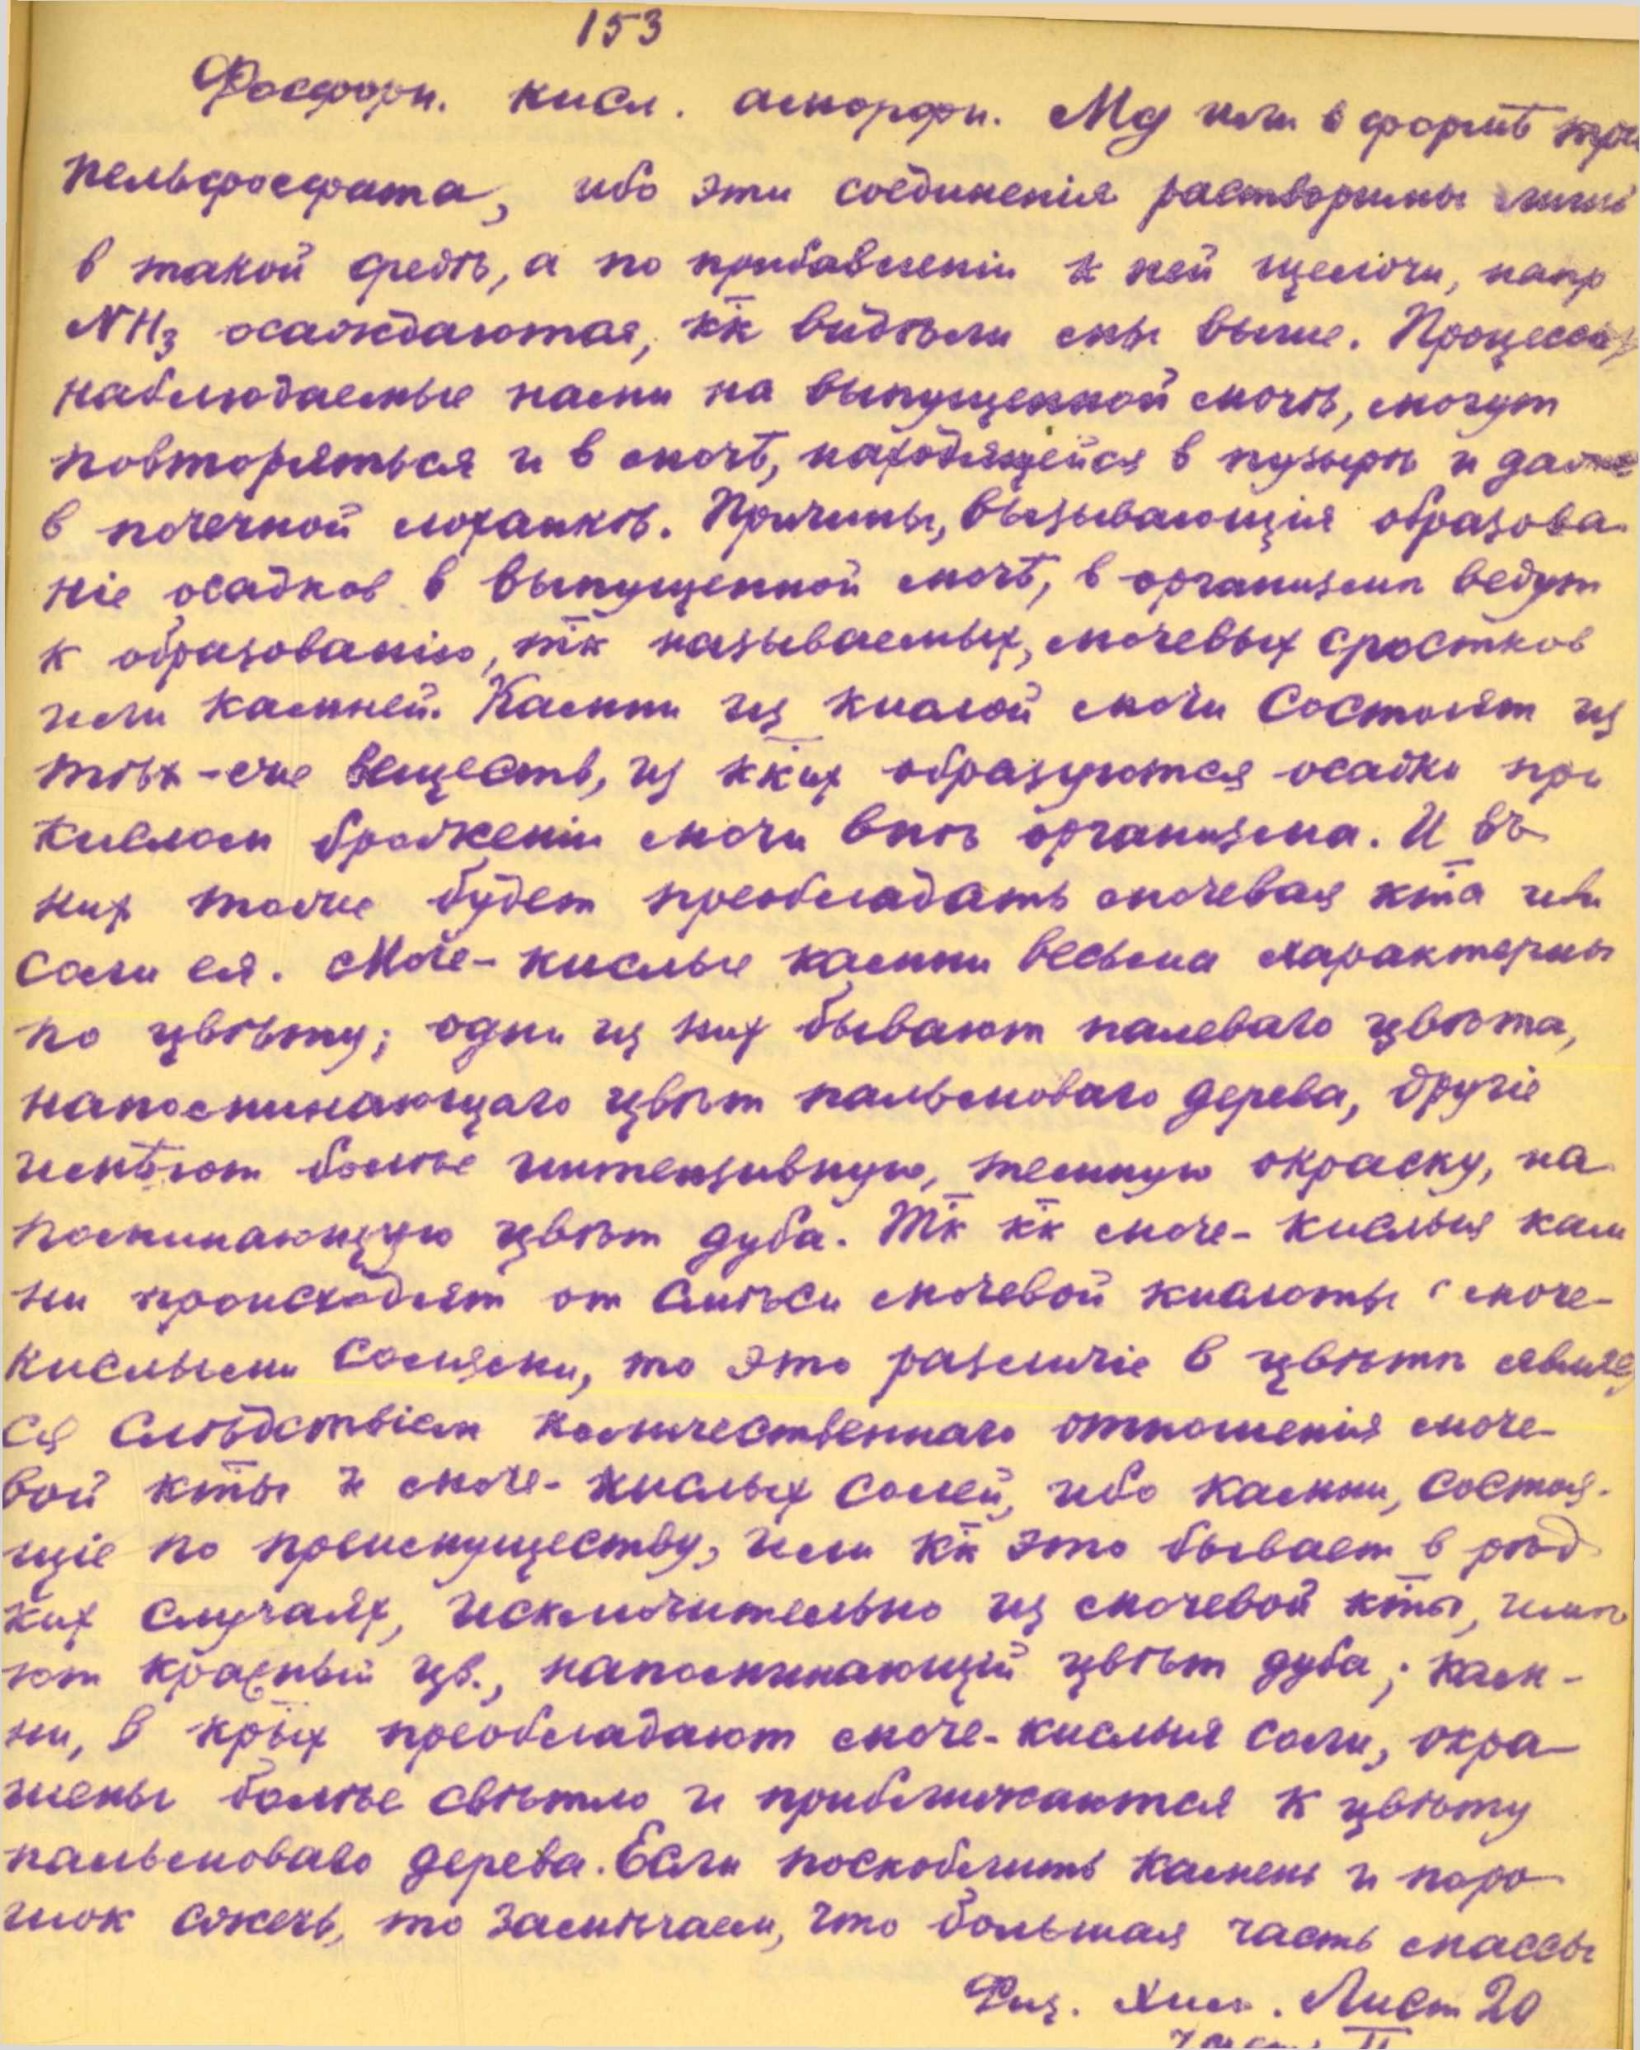 153
Фосфорн. кисл. аморфн. Mg или в формѣ три
пельфосфата, ибо эти соединенія растворимы лишь
в такой средѣ, а по прибавленіи к ней щелочи, напр
NH3 осаждаются, кк видѣли мы выше. Процессы,
наблюдаемые нами на выпущенной мочѣ, могут
повториться и в мочѣ, находящейся в пузырѣ и даже
в почечной лоханкѣ. Причины, вызывающія образова-
ніе осадков в выпущенной мочѣ, в организмѣ ведут
к образованію, тк называемых, мочевых сростков
или камней. Камни из кислой мочи состоят из
тѣх-же веществ, из кких образуются осадки при
кислом броженіи мочи внѣ организма. И въ
них также будет преобладать мочевая кта или
соли ея. Моче-кислые камни весьма характерны
по цвѣту; одни из них бывают палеваго цвѣта,
напоминающаго цвѣт пальмоваго дерева, другіе
имѣют болѣе интензивную, темную окраску, на-
поминающую цвѣт дуба. Тк кк моче-кислыя кам
ни происходят от смѣси мочевой кислоты с моче-
кислыми солями, то это различіе в цвѣтѣ являет
ся слѣдствіем количественнаго отношенія моче-
вой кты и моче-кислых солей, ибо камни, состоя-
щіе по преимуществу, или кк это бывает в рѣд-
ких случаях, исключительно из мочевой кты, имѣ
ют красный цв., напоминающій цвѣт дуба; кам-
ни, в крых преобладают моче-кислыя соли, окра-
шены болѣе свѣтло и приближаются к цвѣту
пальмоваго дерева. Если поскоблить камень и поро-
шок сжечь, то замѣчаем, что большая часть массы
Физ. Хим. Лист 20
часть II